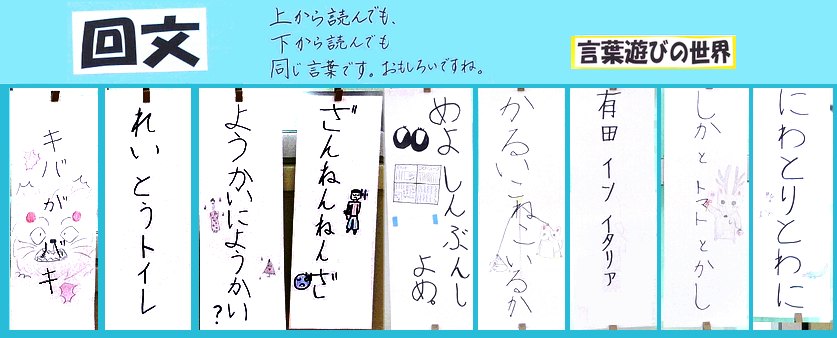 回文
上から読んでも、
下から読んでも
同じ言葉です。おもしろいですね。
言葉遊びの世界
にわとりとわに
しかと トマト とかし
有田 イン イタリア
かるいこねこいるか
めよ しんぶんし よめ。
ざんねんねんざ
ようかいにようかい?
れいとうトイレ
キバがバキ